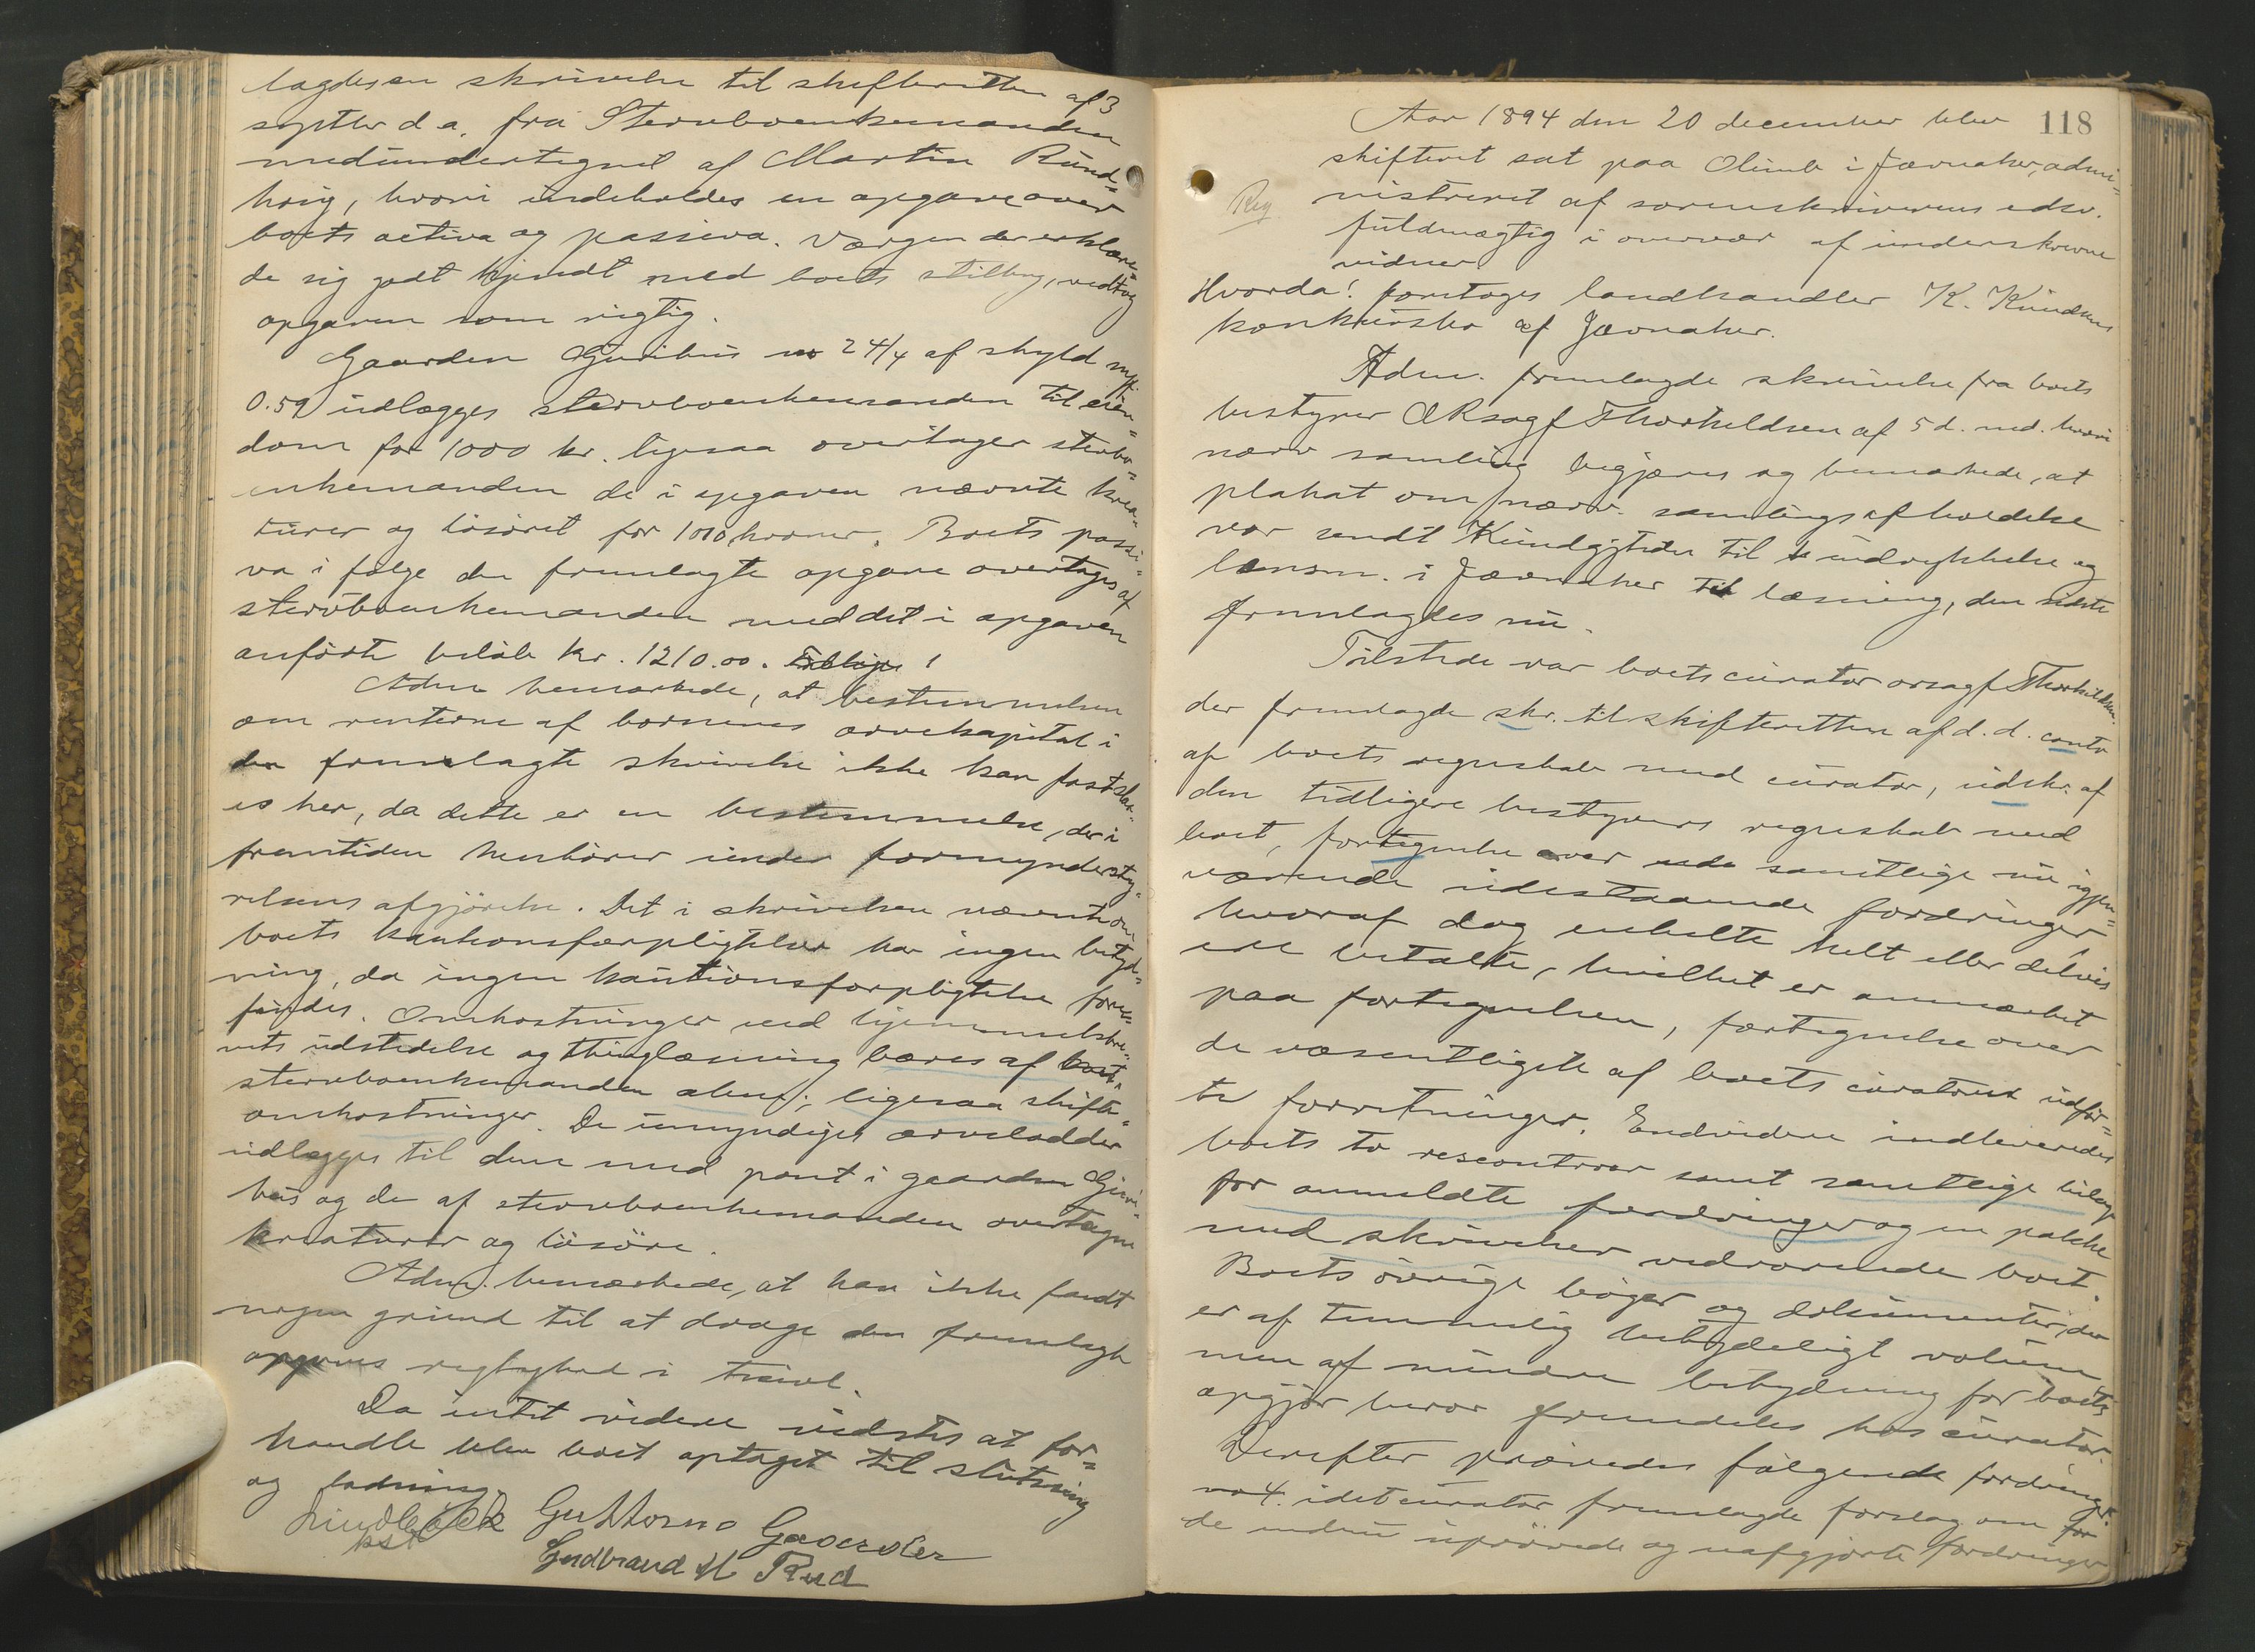 lagdes en skrivelse til skifteretten af 3
septbr d. a. fra Stervboenkemanden
medundertegnet af Martin Rund-
haug, hvori indeholdes en opgave over
boets activa og passiva. Værgen der erklære-
de sig godt kjendt med boets stilling, vedtog
opgaven som rigtig.
Gaarden Gurihus no 24/4 af skyld mk.
0.59 udlægges stervboenkemanden til eien-
dom for 1000 kr. ligesaa overtager stervbo-
enkemanden de i opgaven nævnte krea-
turer og løsøret for 1010 kroner. Boets passi-
va i følge den fremlagte opgave overtages af
stervboenkemanden med det i opgaven
anførte beløb kr. 1210.00.
Adm bemærkede, at bestemmelsen
om renterne af børnenes arvekapital i
den fremlagte skrivelse ikke kan fastslaa-
es her, da dette er en bestemmelse, der i
fremtiden henhører under formyndersty-
relsens afgjørelse. Det i skrivelsen nævnte om
boets kautionsforpligtelser har ingen betyd-
ning, da ingen kautionsforpligtelse fore-
findes. Omkostninger ved hjemmelsbre-
vets udstedelse og thinglæsning bæres af boet
stervboenkemanden alene; ligesaa skifte-
omkostninger. De umyndiges arvelodder
udlægges til dem med pant i gaarden Guri-
hus og de af stervboenkemanden overtagne
kreaturer og løsøre.
Adm. bemærkede, at han ikke fandt
nogen grund til at drage den fremlagte
opgaves rigtighed i tvivl.
Da intet videre vidstes at for-
handle blev boet optaget til slutning
og lodning.
Lindbæck Guttorm Gaarder
kst
Gudbrand H Rud
118
Aar 1894 den 20 december blev
skifteret sat paa Olimb i Jævnaker, admi-
nistreret af sorenskriverens edsv.
Reg
fuldmægtig i overvær af underskrevne
vidner
Hvorda! foretoges landhandler K. Knudsens
konkursbo af Jævnaker.
Adm. fremlagde skrivelse fra boets
bestyrer ORsagf Thorkildsen af 5 d. md. hvori
nærv samling begjæres og bemærkede, at
plakat om nærv. samlings afholdelse
var sendt Kundgjtid til indrykkelse og
lensm. i Jævnaker til læsning, den sidste
fremlagdes nu.
Tilstede var boets curator orsagf Thorkildsen.
der fremlagde skr. til skifteretten af d. d. conto
af boets regnskab med curator, udskr. af
den tidligere bestyrers regnskab med
boet, fortegnelse over samtlige nu igjen-
værende udestaaende fordringer,
hvoraf dog enkelte helt eller delvis
ere betalte, hvilket er anmærket
paa fortegnelsen, fortegnelse over
de væsentligste af boets curators udfør-
te forretninger. Endvidere indleveredes
boets to rescontroer samt samtlige bilage
for anmeldte fordringer og en pakke
med skrivelser vedrørende boet.
Boets øvrige bøger og dokumenter, der
er af temmelig betydeligt volum
men af mindre betydning for boets
opgjør beror fremdeles hos curator.
Derefter prøvedes følgende fordringer.
no 4. idet curator fremlagde forslag om for
de endnu uprøvede og uafgjorte fordringer